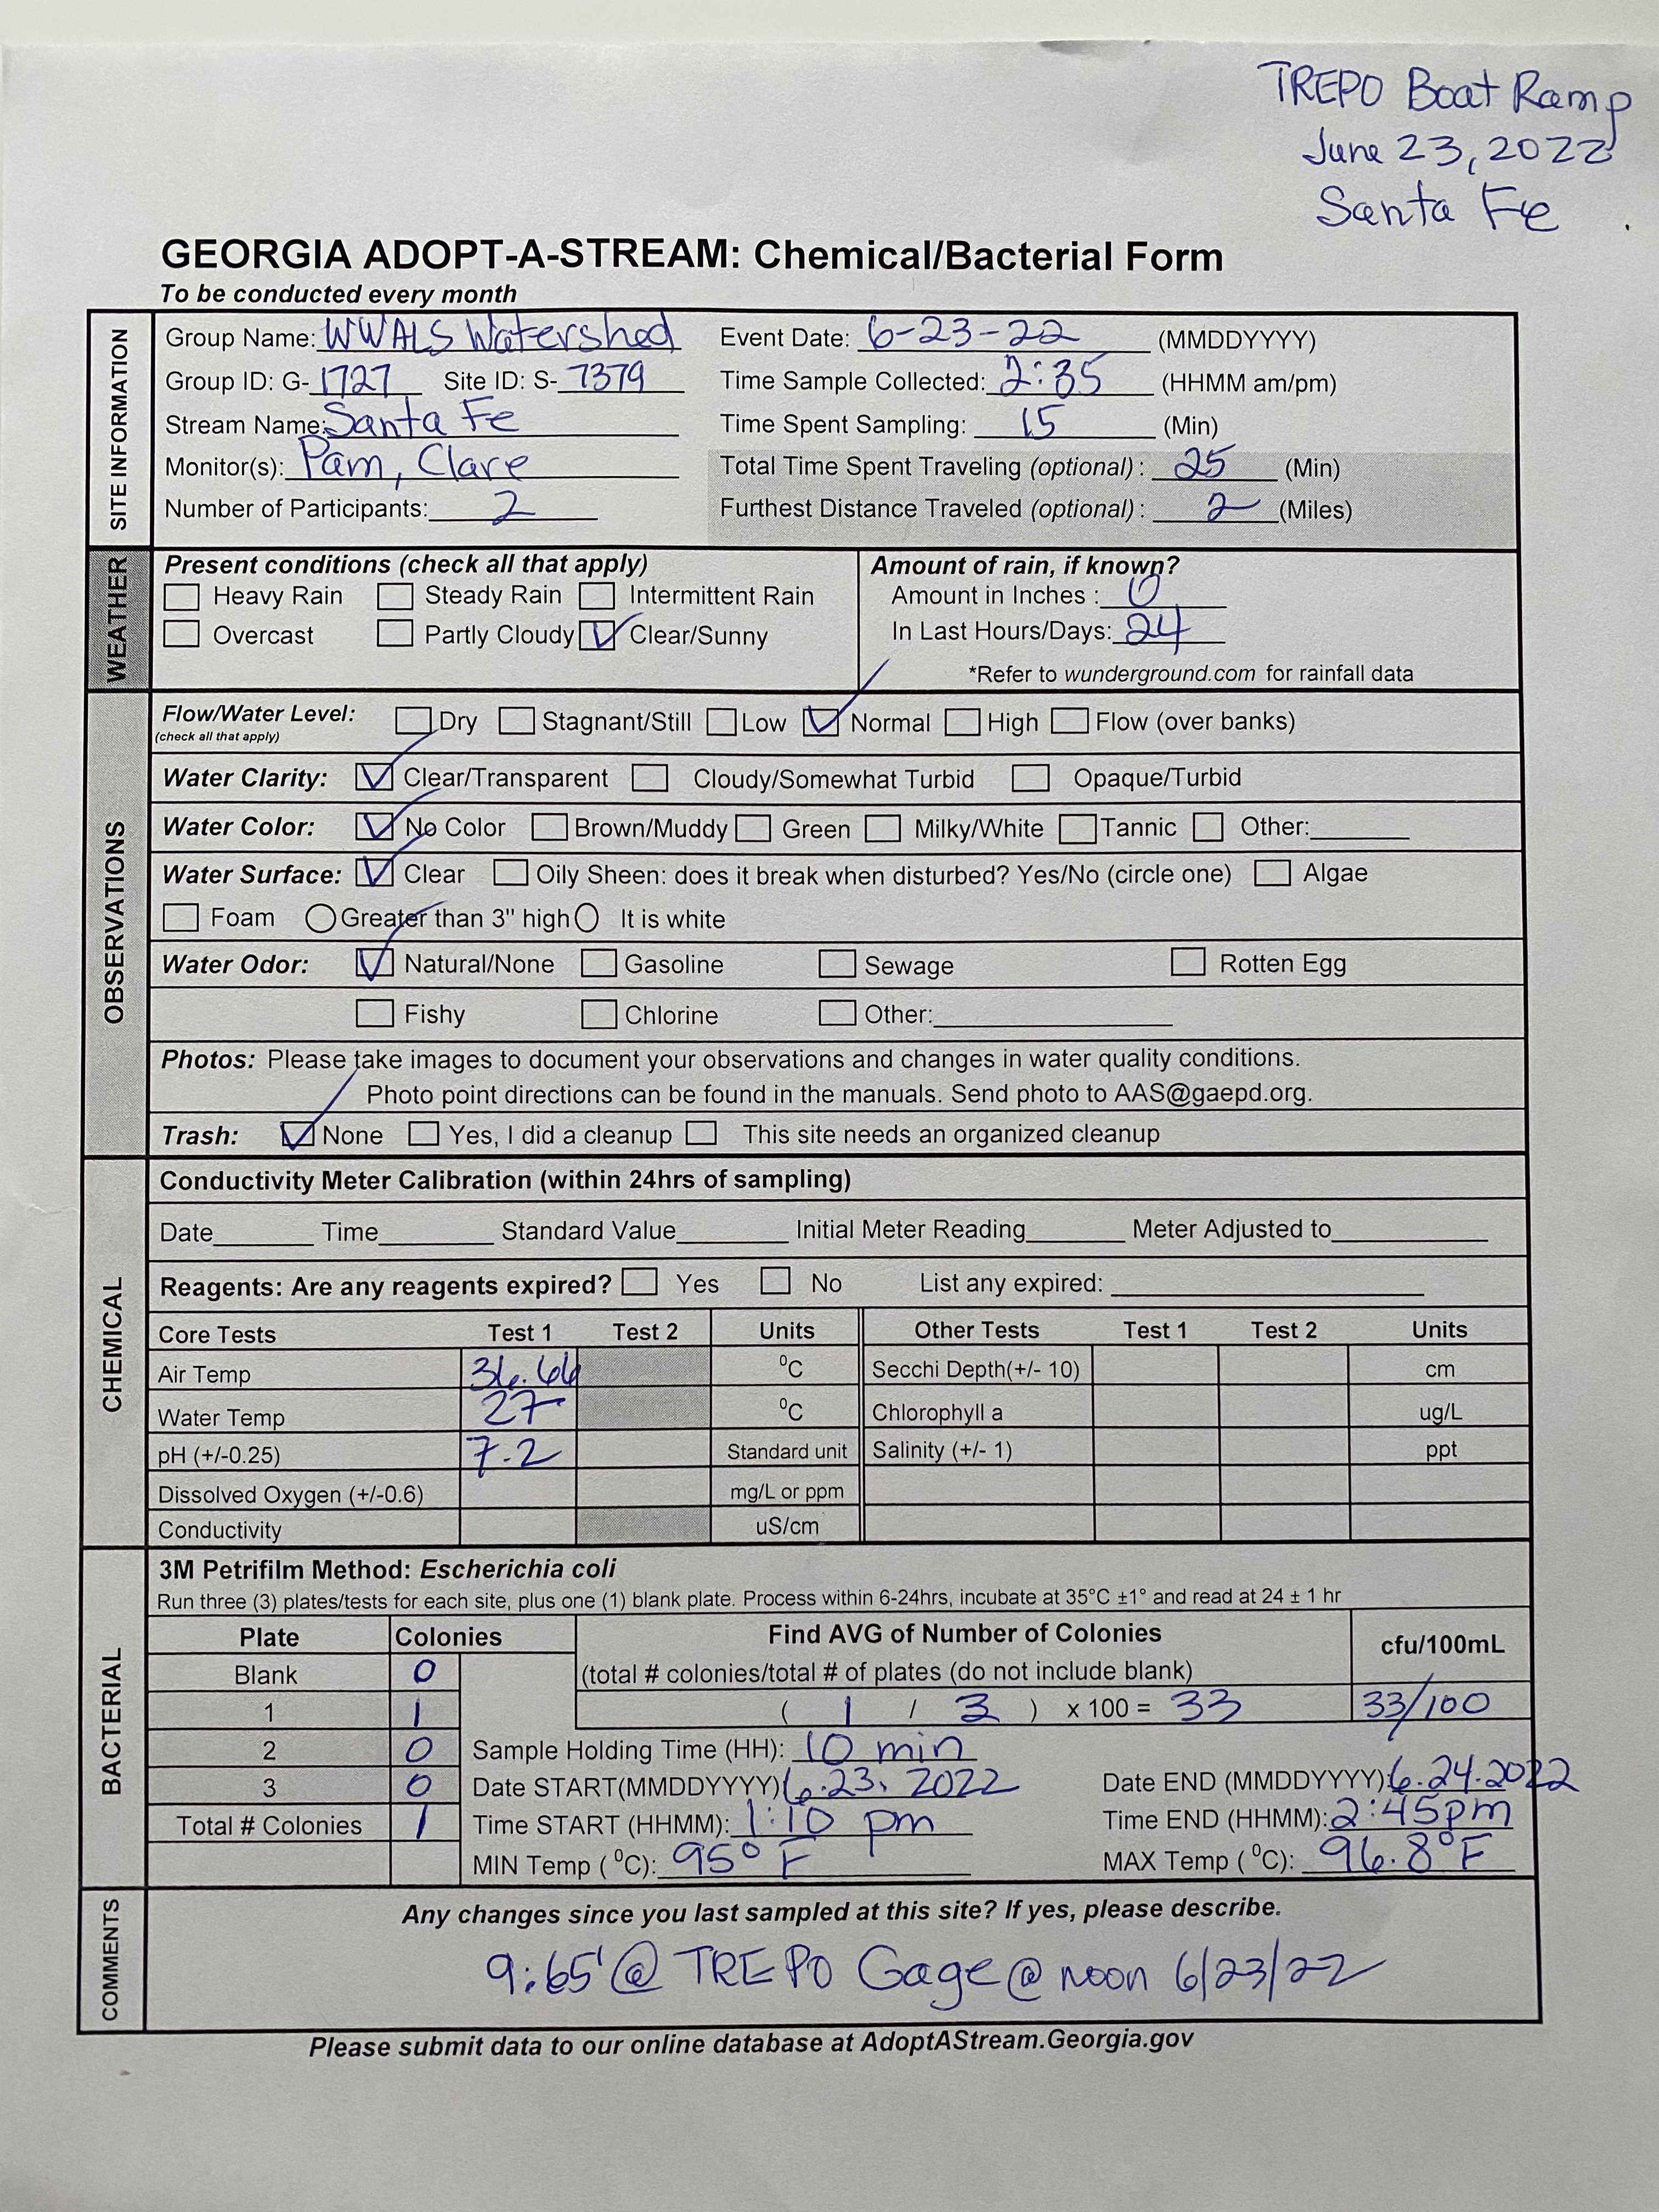 TREPO Boat Ramp
June 23, 2022
Santa Fe
GEORGIA ADOPT-A-STREAM: Chemical/Bacterial Form
To be conducted every month
SITE INFORMATION
Group Name: WWALS Watershed Event Date: 6-23-22 (MMDDYYYY)
Group ID: G- 1727 Site ID: S- 7379 Time Sample Collected: 2:35 (HHMM am/pm)
Stream Name: Santa Fe Time Spent Sampling: 15 (Min)
Monitor(s): Pam, Clare Total Time Spent Traveling (optional): 25 (Min)
Number of Participants: 2 Furthest Distance Traveled (optional): 2 (Miles)
WEATHER
Present conditions (check all that apply) Amount of rain, if known?
Heavy Rain Steady Rain Intermittent Rain Amount in Inches : 0
Overcast Partly Cloudy Clear/Sunny In Last Hours/Days: 24
*Refer to wunderground.com for rainfall data
OBSERVATIONS
Flow/Water Level: Dry Stagnant/Still Low Normal High Flow (over banks)
(check all that apply)
Water Clarity: Clear/Transparent Cloudy/Somewhat Turbid Opaque/Turbid
Water Color: No Color Brown/Muddy Green Milky/White Tannic Other:
Water Surface: Clear Oily Sheen: does it break when disturbed? Yes/No (circle one) Algae
Foam Greater than 3" high It is white
Water Odor: Natural/None Gasoline Sewage Rotten Egg
Fishy Chlorine Other:
Photos: Please take images to document your observations and changes in water quality conditions.
Photo point directions can be found in the manuals. Send photo to AAS@gaepd.org.
Trash: None Yes, I did a cleanup This site needs an organized cleanup
CHEMICAL
Conductivity Meter Calibration (within 24hrs of sampling)
Date Time Standard Value Initial Meter Reading Meter Adjusted to
Reagents: Are any reagents expired? Yes No List any expired:
Core Tests Test 1 Test 2 Units Other Tests Test 1 Test 2 Units
Air Temp 36.66 ⁰C Secchi Depth(+/- 10) cm
Water Temp 27 ⁰C Chlorophyll a ug/L
pH (+/-0.25) 7.2 Standard unit Salinity (+/- 1) ppt
Dissolved Oxygen (+/-0.6) mg/L or ppm
Conductivity uS/cm
BACTERIAL
3M Petrifilm Method: Escherichia coli
Run three (3) plates/tests for each site, plus one (1) blank plate. Process within 6-24hrs, incubate at 35°C ±1° and read at 24 ± 1 hr
Plate Colonies Find AVG of Number of Colonies cfu/100mL
Blank 0 (total # colonies/total # of plates (do not include blank)
1 1 ( 1 / 3 ) x 100 = 33 33/100
2 0 Sample Holding Time (HH): 10 min
3 0 Date START(MMDDYYYY) 6.23.2022 Date END (MMDDYYYY): 6.24.2022
Total # Colonies 1 Time START (HHMM): 1:10 pm Time END (HHMM): 2:45pm
MIN Temp (⁰C): 95° F MAX Temp (⁰C): 96.8°F
COMMENTS
Any changes since you last sampled at this site? If yes, please describe.
9.65' @ TREPO Gage @ noon 6/23/22
Please submit data to our online database at AdoptAStream.Georgia.gov